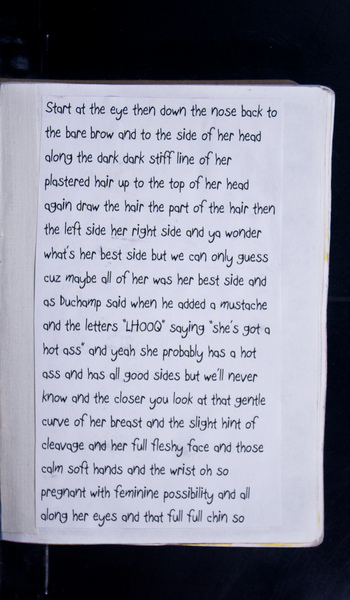 Start at the eye then down the nose back to
the bare brow and to the side of her head
along the dark dark stiff line of her
plastered hair up to the top of her head
again draw the hair the part of the hair then
the left side her right side and ya wonder
what's her best side but we can only guess
cuz maybe all of her was her best side and
as Duchamp said when he added a mustache
and the letters "LHOOQ" saying "she's got a
hot ass" and yeah she probably has a hot
ass and has all good sides but we'll never
know and the closer you look at that gentle
curve of her breast and the slight hint of
cleavage and her full fleshy face and those
calm soft hands and the wrist oh so
pregnant with feminine possibility and all
along her eyes and that full full chin so